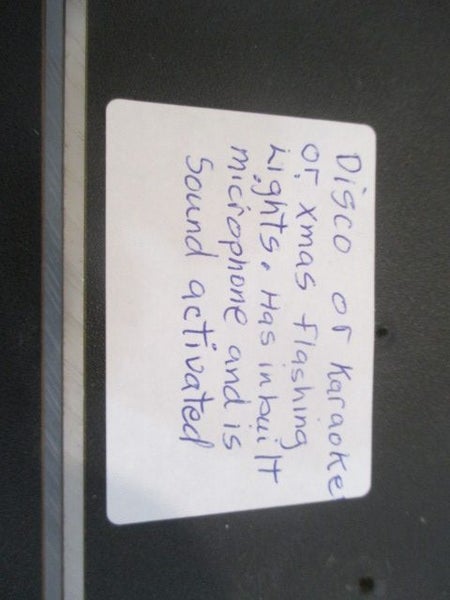 Disco or Karaoke
or xmas flashing
Lights. Has inbuilt
microphone and is
Sound activated